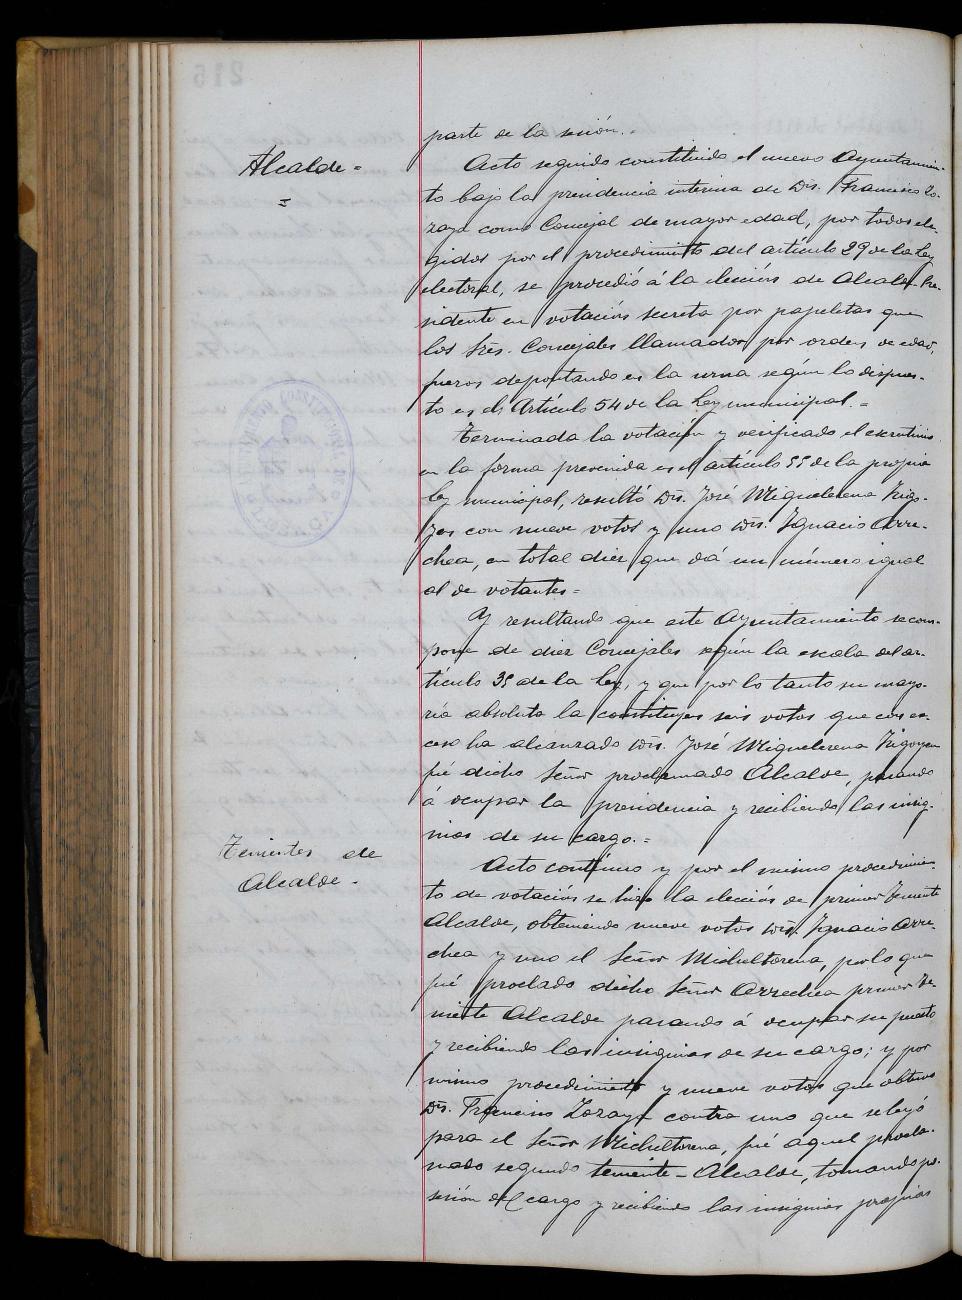 parte de la sesión.=
Alcalde=
Acto seguido constituido el nuevo Ayuntamien-
to bajo la presidencia interina de Dn. Francisco Zo-
zaya como Concejal de mayor edad, por todos ele-
gidos por el procedimiento del artículo 29 de la Ley
electoral, se procedió á la elección de Alcalde Pre-
sidente en votación secreta por papeletas que
los Sres. Concejales llamados por orden de edad,
fueron depositando en la urna según lo dispues-
to en el Artículo 54 de la Ley municipal.=
Terminada la votación y verificado el escrutinio
en la forma prevenida en el artículo 55 de la propia
ley municipal, resultó Dn. José Miguelerena Irigo-
yen con nueve votos y uno Dn. Ignacio Arre-
chea, en total diez que dá un número igual
al de votantes=
Y resultando que este Ayuntamiento se com-
pone de diez Concejales según la escala del ar-
tículo 35 de la Ley, y que por lo tanto su mayo-
ría absoluta la constituyen seis votos que con ex-
ceso ha alcanzado Dn. José Miguelerena Irigoyen
fué dicho Señor proclamado Alcalde, pasando
á ocupar la presidencia y recibiendo las insig-
nias de su cargo.=
Tenientes de
Alcalde-
Acto contínuo y por el mismo procedimien-
to de votación se hizo la elección de primer Teniente
Alcalde, obteniendo nueve votos Dn. Ignacio Arre-
chea y uno el Señor Micheltorena, por lo que
fué proclado dicho Señor Arrechea primer Te-
niente Alcalde pasando á ocupar su puesto
y recibiendo las insignias de su cargo; y por
mismo procedimiento y nueve votos que obtuvo
Dn. Francisco Zozaya contra uno que se leyó
para el Señor Micheltorena, fué aquel procla-
mado segundo teniente-Alcalde, tomando po-
sesión del cargo y recibiendo las insignias propias